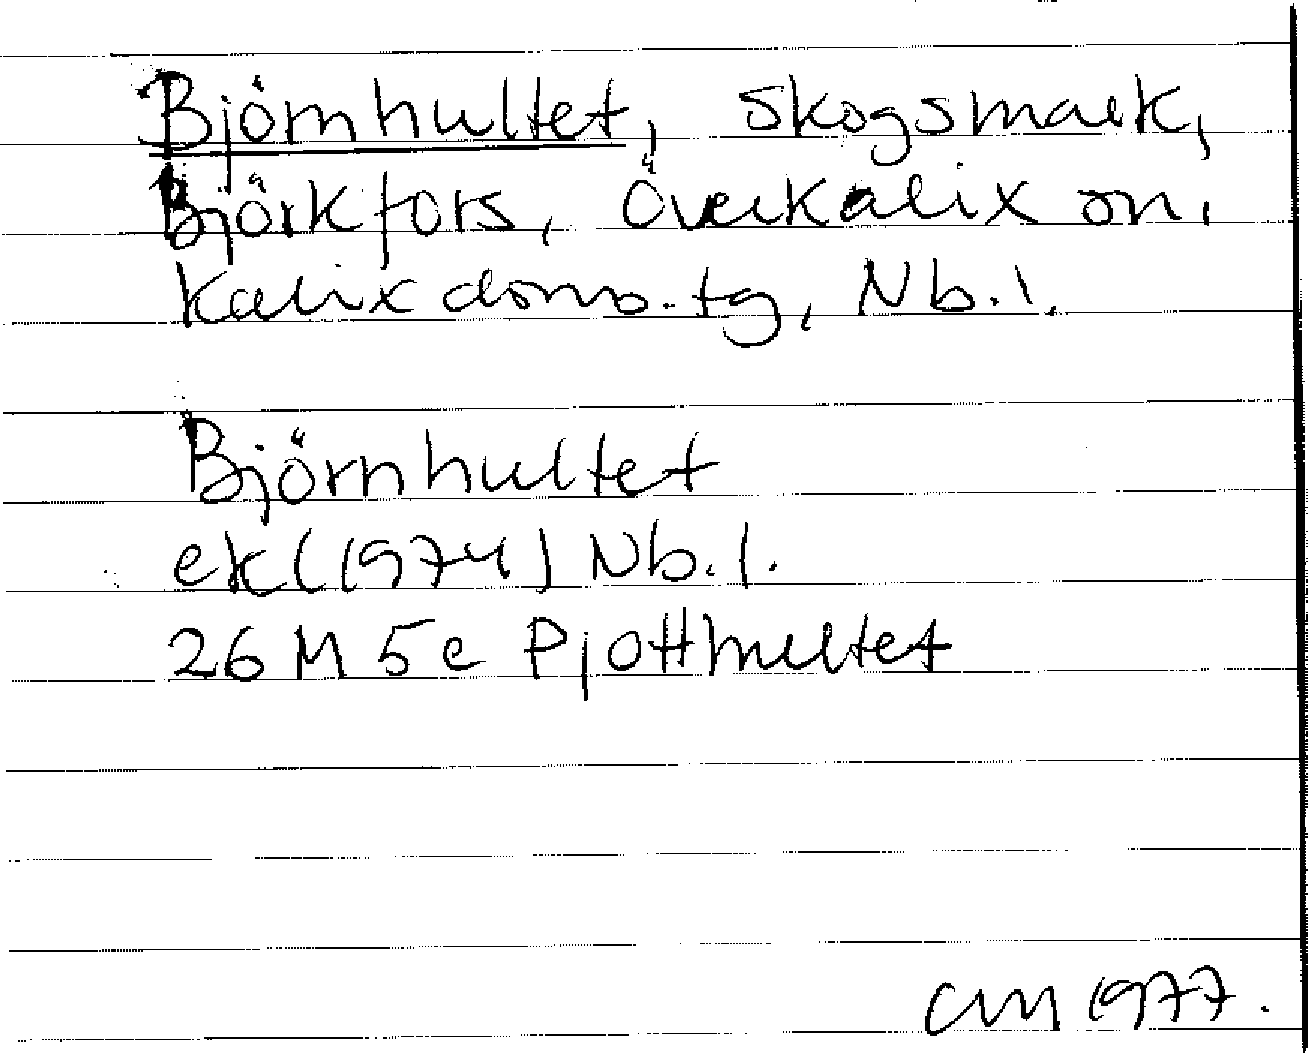 Björnhultet, skogsmark,
Björkfors, Överkalix sn,
Kalix doms. tg, Nb. l.
Björnhultet
ek (1974) Nb. l.
26 M 5 e Pjotthultet
CM 1977.